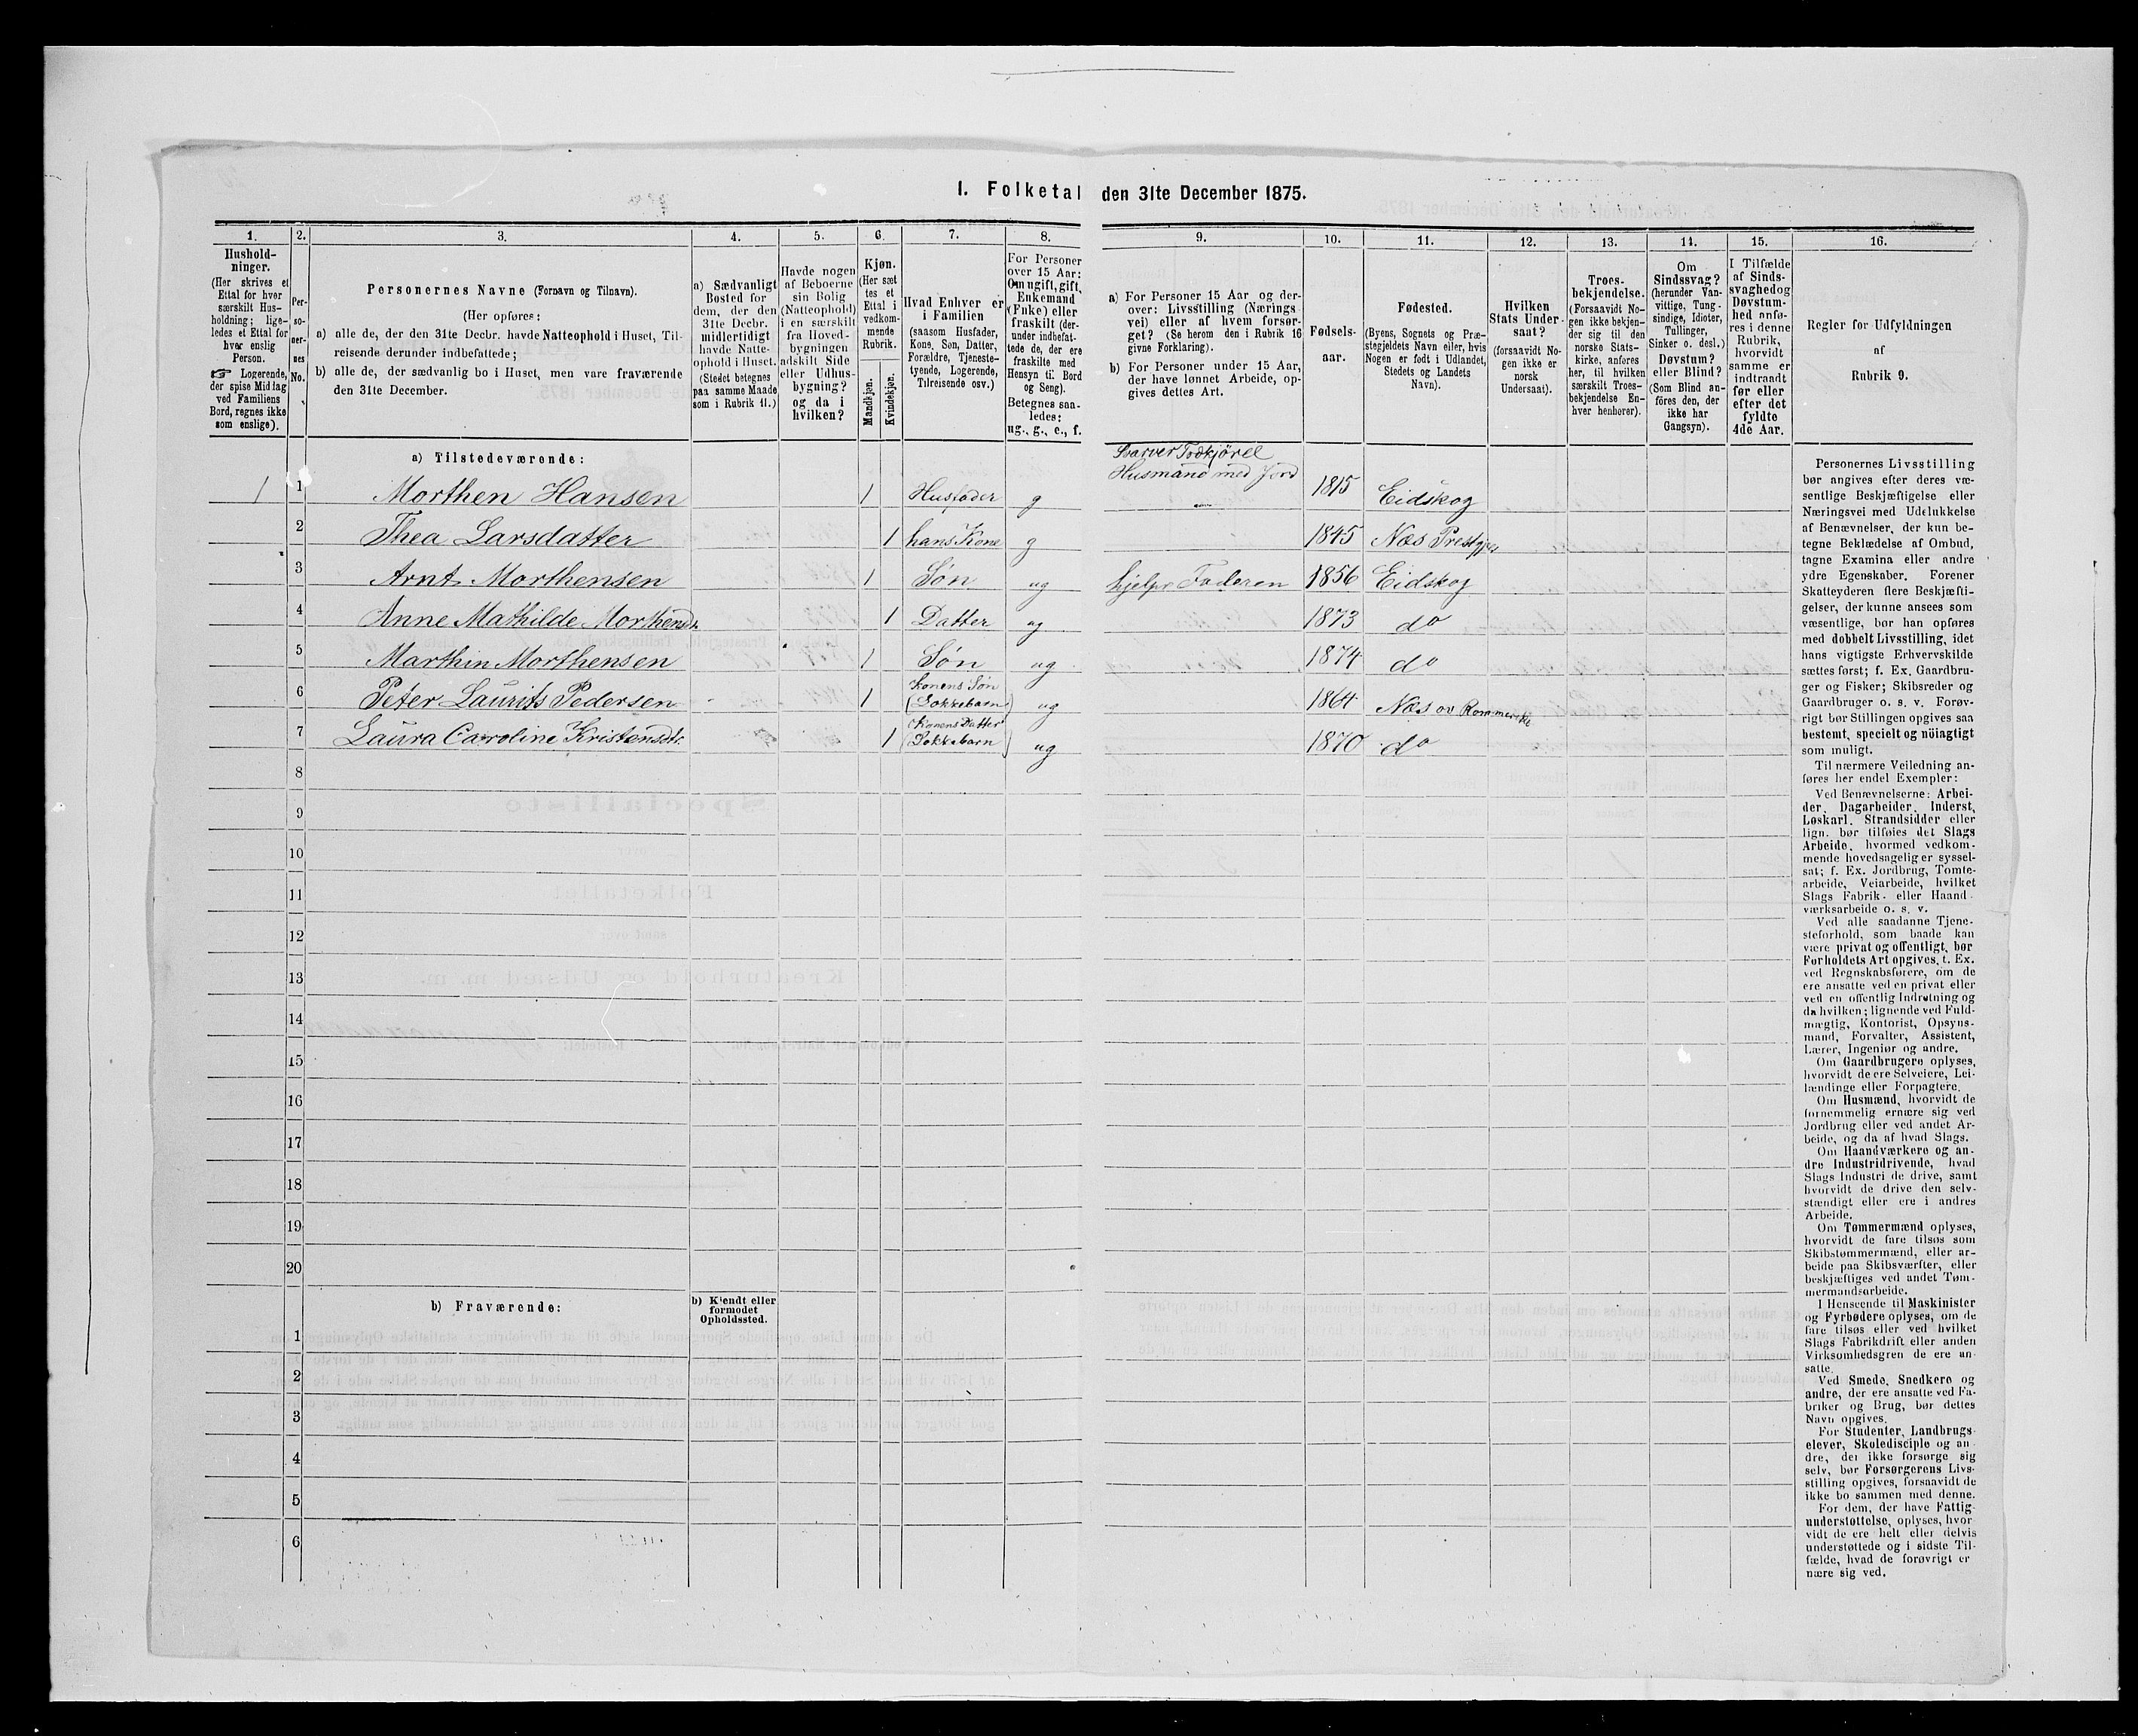 I. Folketal den 31te December 1875.
1. 2. 3. 4. 5. 6. 7. 8. 9. 10. 11. 12. 13. 14. 15. 16.
Hushold-
ninger.
(Her skrives et
Ettal for hver
særskilt Hus-
holdning; lige-
ledes et Ettal for
hver enslig
Person.
☞ Logerende,
der spise Middag
ved Familiens
Bord, regnes ikke
som enslige).
Per-
so-
ner-
nes
No.
Personernes Navne (Fornavn og Tilnavn).
(Her opføres:
a) alle de, der den 31te Decbr. havde Natteophold i Huset, Til-
reisende derunder indbefattede;
b) alle de, der sædvanlig bo i Huset, men vare fraværende
den 31te December.
a) Sædvanligt
Bosted for
dem, der den
31te Decbr.
midlertidigt
havde Natte-
ophold i Huset.
(Stedet betegnes
paa samme Maade
som i Rubrik 11.)
Havde nogen
af Beboerne
sin Bolig
(Natteophold)
i en særskilt
fra Hoved-
bygningen
adskilt Side
eller Udhus-
bygning?
og da i
hvilken?
Kjøn.
(Her sæt
tes et
Ettal i
vedkom-
mende
Rubrik.
Mandkjøn.
Kvindekjøn.
Hvad Enhver er
i Familien
(saasom Husfader,
Kone, Søn, Datter,
Forældre, Tjeneste-
tyende, Logerende,
Tilreisende osv.)
For Personer
over 15 Aar:
Om ugift, gift,
Enkemand
(Enke) eller
fraskilt (der-
under indbefat-
tede de, der ere
fraskilte med
Hensyn til Bord
og Seng).
Betegnes saa-
ledes:
ug., g., e., f.
a) For Personer 15 Aar og der-
over: Livsstilling (Nærings
vei) eller af hvem forsør-
get? (Se herom den i Rubrik 16
givne Forklaring).
b) For Personer under 15 Aar,
der have lønnet Arbeide, op-
gives dettes Art.
Fødsels-
aar.
Fødested.
(Byens, Sognets og Præ-
stegjeldets Navn eller, hvis
Nogen er født i Udlandet,
Stedets og Landets
Navn).
Hvilken
Stats Under-
saat?
(forsaavidt No-
gen ikke er
norsk
Undersaat).
Troes-
bekjendelse.
(Forsaavidt No-
gen ikke bekjen-
der sig til den
norske Stats-
kirke, anføres
her, til hvilken
særskilt Troes-
bekjendelse En-
hver henhører).
Om
Sindssvag?
(herunder Van-
vittige, Tung-
sindige, Idioter,
Tullinger,
Sinker o. desl.)
Døvstum?
eller Blind?
(Som Blind an-
føres den, der
ikke har
Gangsyn).
I Tilfælde
af Sinds-
svaghed og
Døvstum-
hed anfø-
res i denne
Rubrik,
hvorvidt
samme er
indtraadt
før eller
efter det
fyldte
4de Aar.
Regler for Udfyldningen
af
Rubrik 9.
a) Tilstedeværende:
1 1 Morthen Hansen 1 Husfader g Husmand med Jord 1815 Eidskog
2 Thea Larsdatter 1 hans Kone g 1845 Næs
3 Arnt Morthensen 1 Søn ug hjelper Faderen 1856 Eidskog
4 Anne Mathilde 1 Datter ug 1873 do
5 Marthin Morthensen 1 Søn ug 1874 do
6 Peter Laurits Pedersen 1 Konens Søn (Lokkebarn) ug 1864 Næs
7 Laura Caroline Kristensdtr. 1 Konens Datter (Lokkebarn) ug 1870 do
8
9
10
11
12
13
14
15
16
17
18
19
20
b) Fraværende:
b) Kjendt eller
formodet
Opholdssted.
1
2
3
4
5
6
Personernes Livsstilling
bør angives efter deres væ-
sentlige Beskjæftigelse eller
Næringsvei med Udelukkelse
af Benævnelser, der kun be-
tegne Beklædelse af Ombud,
tagne Examina eller andre
ydre Egenskaber. Forener
Skatteyderen flere Beskjæfti-
gelser, der kunne ansees som
væsentlige, bør han opføres
med dobbelt Livsstilling, idet
hans vigtigste Erhvervskilde
sættes først; f. Ex. Gaardbru-
ger og Fisker; Skibsreder og
Gaardbruger o. s. v. Forøv-
rigt bør Stillingen opgives saa
bestemt, specielt og nöiagtigt
som muligt.
Til nærmere Veiledning an-
føres her endel Exempler:
Ved Benævnelserne: Arbei-
der, Dagarbeider, Inderst,
Løskarl, Strandsidder eller
lign. bør tilføies det Slags
Arbeide, hvormed vedkom-
mende hovedsagelig er syssel-
sat; f. Ex. Jordbrug, Tomte-
arbeide, Veiarbeide, hvilket
Slags Fabrik- eller Haand-
værksarbeide o. s. v.
Ved alle saadanne Tjene-
steforhold, som baade kan
være privat og offentligt, bør
Forholdets Art opgives, f. Ex.
ved Regnskabsførere, om de
ere ansatte ved en privat eller
ved en offentlig Indretning og
da hvilken; lignende ved Fuld-
mægtig, Kontorist, Opsyns-
mand, Forvalter, Assistent,
Lærer, Ingeniør og andre.
Om Gaardbrugere oplyses,
hvorvidt de ere Selveiere, Lei-
lændinge eller Forpagtere.
Om Husmænd, hvorvidt de
fornemmelig ernære sig ved
Jordbrug eller ved andet Ar-
beide, og da af hvad Slags.
Om Haandværkere og an-
dre Industridrivende, hvad
Slags Industri de drive, samt
hvorvidt de drive den selv-
stændigt eller ere i andres
Arbeide.
Om Tømmermænd oplyses,
hvorvidt de fare tilsøs som
Skibstømmermænd, eller ar-
beide paa Skibsværfter, eller
beskjæftiges ved andet Tøm-
mermandsarbeide.
I Henseende til Maskinister
og Fyrbødere oplyses, om de
fare tilsøs eller ved hvilket
Slags Fabrikdrift eller anden
Virksomhedsgren de ere an-
satte.
Ved Smede, Snedkere og
andre, der ere ansatte ved Fa-
briker og Brug, bør dettes
Navn opgives.
For Studenter, Landbrugs-
elever, Skoledisciple og an-
dre, der ikke forsørge sig
selv, bør Forsørgerens Livs-
stilling opgives, forsaavidt de
ikke bo sammen med denne.
For dem, der have Fattig-
understøttelse, oplyses, hvor-
vidt de ere helt eller delvis
understøttede og i sidste Til-
fælde, hvad de forøvrigt er
nære sig ved.